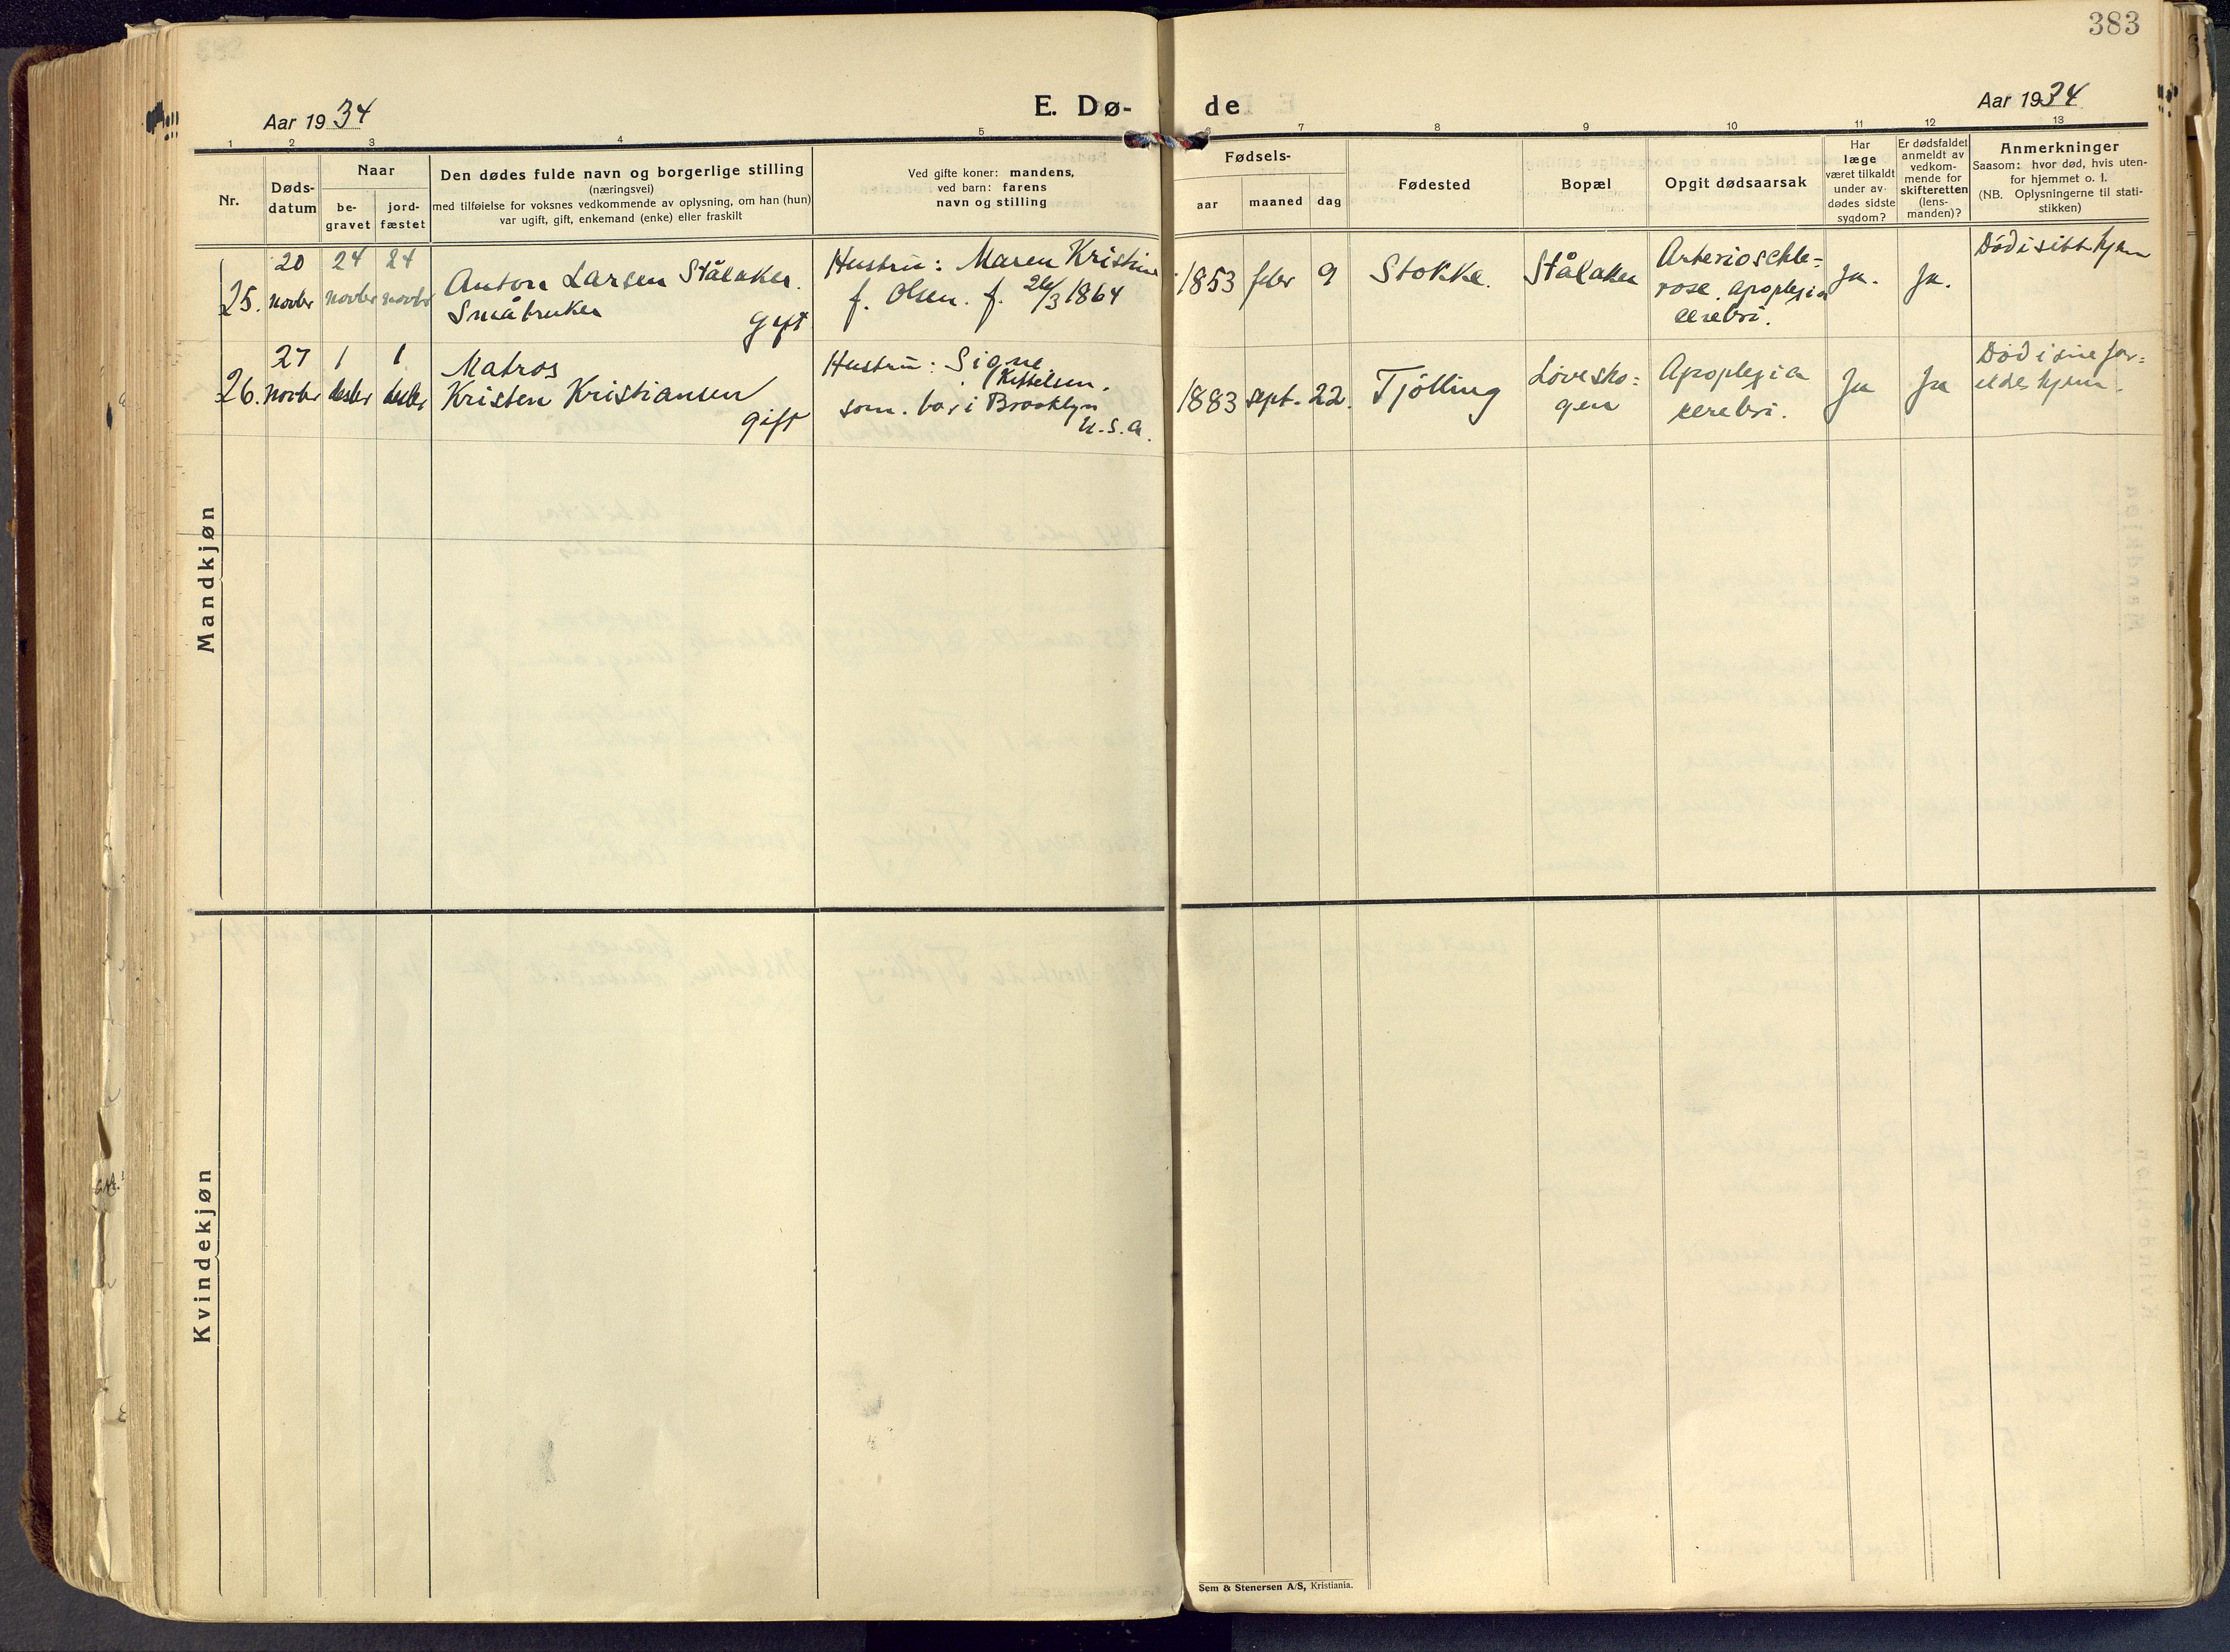 383
Aar 1934
E. Dø-
de
Aar 1934
1 2 3 4 5 6 7 8 9 10 11 12 13
Nr.
Døds-
datum
Naar
be-
gravet
jord-
fæstet
Den dødes fulde navn og borgerlige stilling
(næringsvei)
med tilføielse for voksnes vedkommende av oplysning, om han (hun)
var ugift, gift, enkemand (enke) eller fraskilt
Ved gifte koner: mandens,
ved barn: farens
navn og stilling
Fødsels-
aar
maaned
dag
Fødested
Bopæl
Opgit dødsaarsak
Har
læge
været tilkaldt
under av-
dødes sidste
sygdom?
Er dødsfaldet
anmeldt av
vedkom-
mende for
skifteretten
(lens-
manden)?
Anmerkninger
Saasom: hvor død, hvis uten-
for hjemmet o. l.
(NB. Oplysningerne til stati-
stikken)
Mandkjøn
25.
20
novbr
24
novbr
24
novbr
Anton Larsen Stålaker.
Småbruker
gift
Hustru: Maren Kristine
f. Olsen. f. 26/3 1864
1853
febr
9
Stokke.
Stålaker
Arterioschle-
rose. apoplexia
cerebri.
Ja.
Ja.
Död i sitt hjem
26.
27
novbr
1
desbr
1
desbr
Matros
Kristen Kristiansen
gift
Hustru: Signe
Kittelsen.
som. bor i Brooklyn
U.S.A.
1883
sept.
22.
Tjölling
Lövesko=
gen
Apoplexia
cerebri.
Ja
Ja
Död i sine for=
eldes hjem.
Kvindekjøn
Sem & Stenersen A/S, Kristiania.